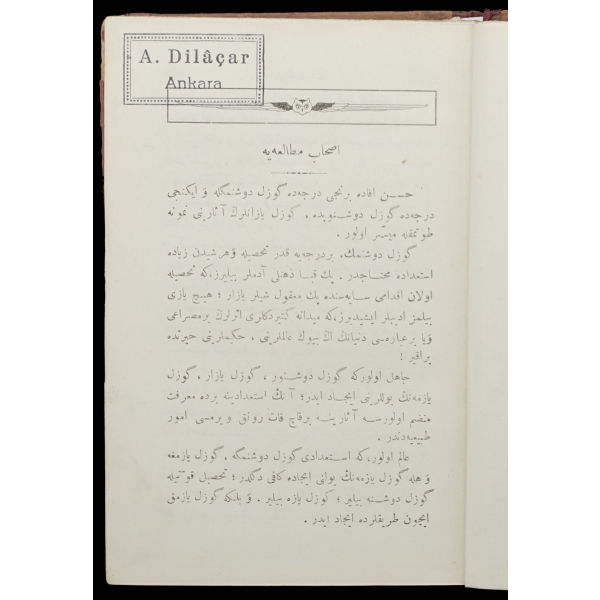 A. Dilâçar
Ankara
اصحاب مطالعه‌یه
حسن افاده برنجی درجه‌ده گوزل دوشنمگله و ایكنجی
درجه‌ده گوزل دوشنویده ، گوزل یازانلرك آثارینی نمونه
طوتمقله میسّر اولور .
گوزل دوشنمك، بر درجه‌یه قدر تحصیله و هر شیدن زیاده
استعداده محتاجدر . پك قبا ذهنلی آدملر بیلیرز، كه تحصیله
اولان اقدامی سایه‌سنده پك معقول شیلر یازار ؛ هیچ یازی
بیلمز ادیبلر ایشیدیرز، كه میدانه گتیردكلری اثرلرك بر مصراعی
ویا بر عباره‌سی دنیانك اڭ بیوك عالملرینی ، حكیملرینی حیرتده
براقیر !
جاهل اولور كه گوزل دوشنور ، گوزل یازار ، گوزل
یازمه‌نك یوللرینی ایجاد ایدر ؛ آنك استعدادینه برده معرفت
منضم اولورسه آثارینه برقاچ قات رونق ویرمسی امور
طبیعیه‌دندر .
عالم اولور، كه استعدادی گوزل دوشنمگه ، گوزل یازمغه
و هله گوزل یازمه‌نك یولنی ایجاده كافی دگلدر ؛ تحصیل قوتیله
گوزل دوشنه بیلیر ؛ گوزل یازه بیلیر ، و بلكه گوزل یازمق
ایچون طریقلرده ایجاد ایدر .